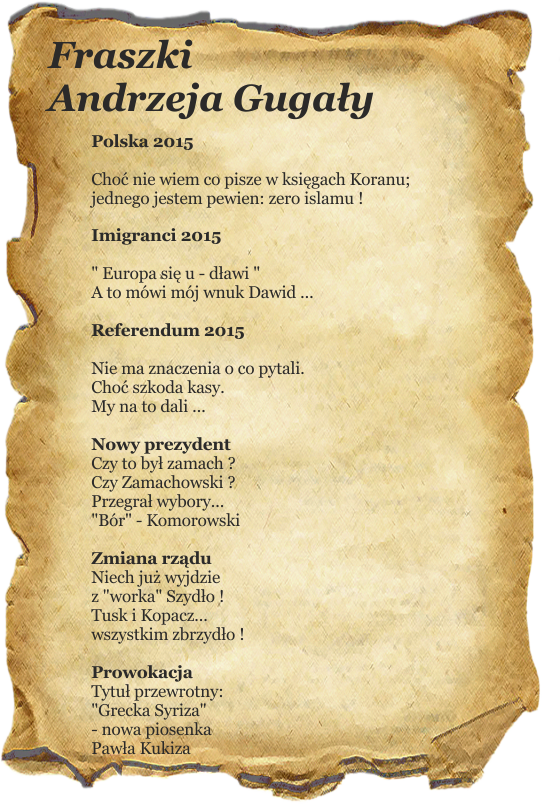 Fraszki
Andrzeja Gugały
Polska 2015
Choć nie wiem co pisze w księgach Koranu;
jednego jestem pewien: zero islamu !
Imigranci 2015
" Europa się u - dławi "
A to mówi mój wnuk Dawid ...
Referendum 2015
Nie ma znaczenia o co pytali.
Choć szkoda kasy.
My na to dali ...
Nowy prezydent
Czy to był zamach ?
Czy Zamachowski ?
Przegrał wybory...
"Bór" - Komorowski
Zmiana rządu
Niech już wyjdzie
z "worka" Szydło !
Tusk i Kopacz...
wszystkim zbrzydło !
Prowokacja
Tytuł przewrotny:
"Grecka Syriza"
- nowa piosenka
Pawła Kukiza